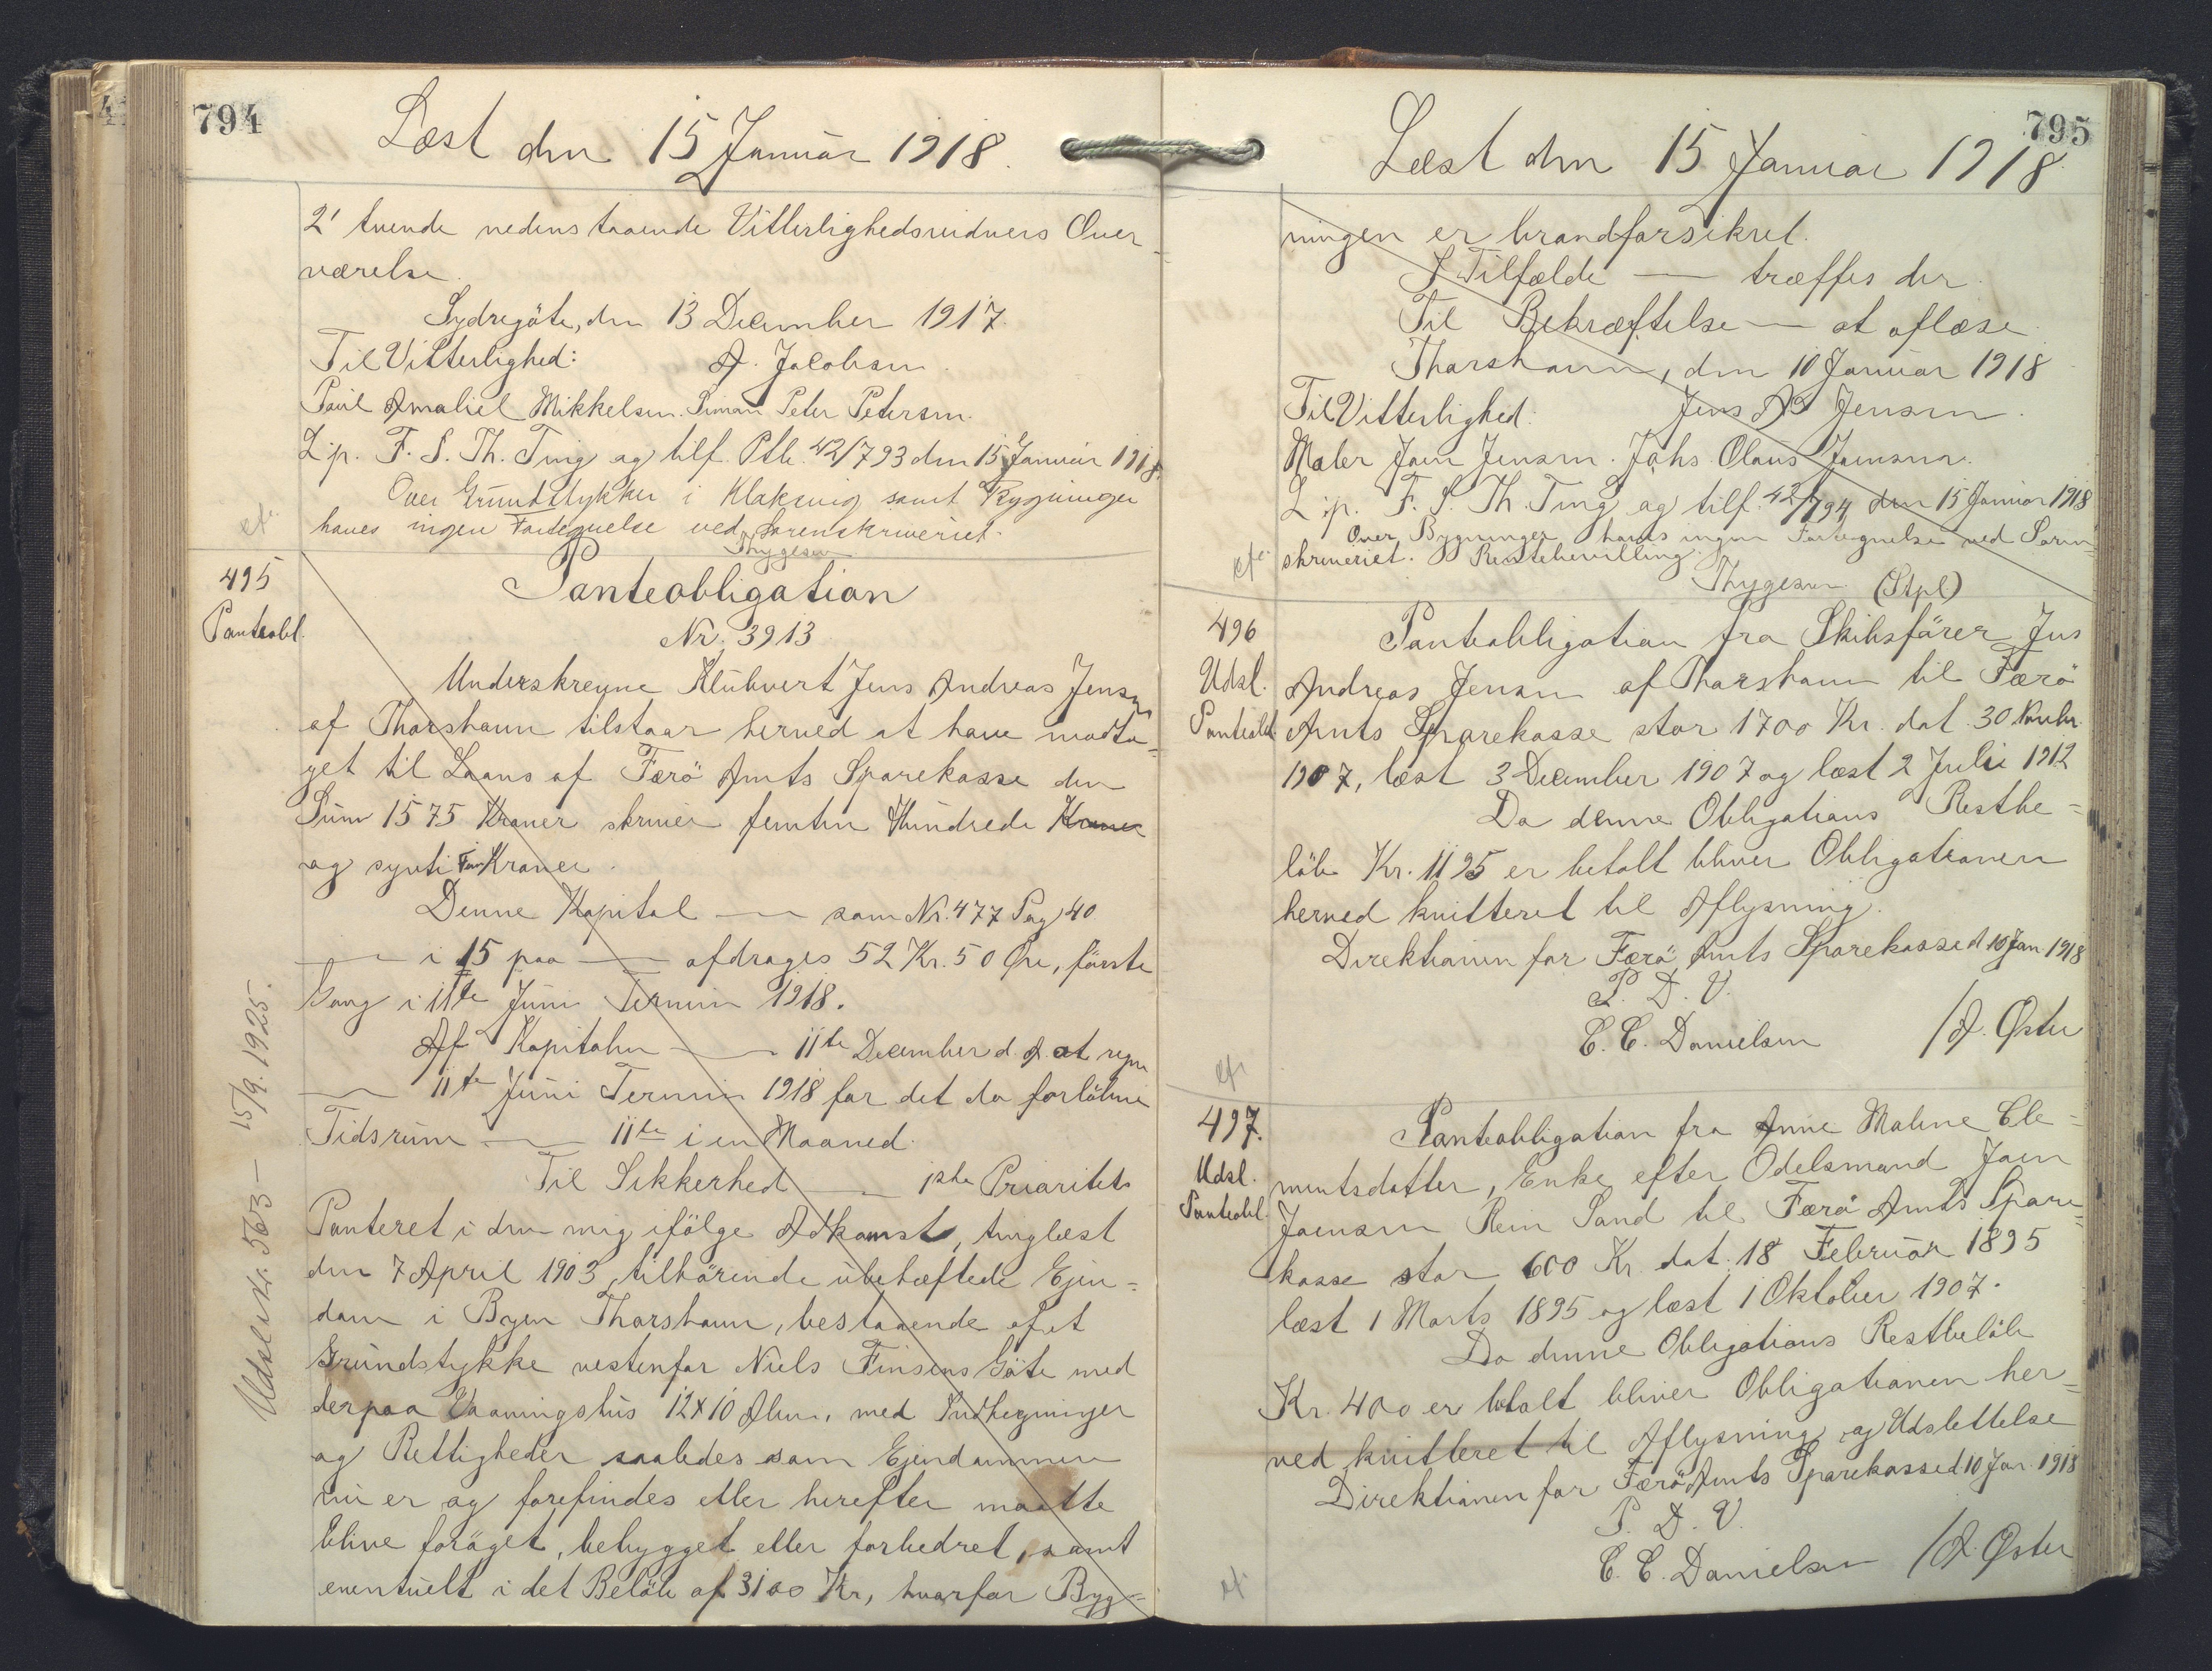 794
Læst den 15 Januar 1918.
2' tvende nedenstaaende Vitterlighedsvidners Over-
værelse.
Sydregöte, den 13 December 1917.
Til Vitterlighed: A. Jacobsen.
Paul Amaliel Mikkelsen. Simon Peter Petersen.
L. p. F. S. Th. Ting og tilf. Ptb. 42/793 den 15 Januar 1918.
Over Grundstykker i Klaksvig samt Bygninger
haves ingen Fortegnelse ved Sorenskriveriet.
Thygesen
cfr.
495
Panteobl.
Panteobligation
Nr. 3913
Underskrevne Klubvert Jens Andreas Jensen
af Thorshavn tilstaar herved at have modta-
get til Laans af Færö Amts Sparekasse den
Sum 1575 Kroner skriver femten Hundrede Kroner
og syvti Fem Kroner.
Denne Kapital — som Nr. 477 Pag 40
— i 15 paa — afdrages 52 Kr. 50 Øre, förste
Gang i 11te Juni Termin 1918.
Af Kapitalen — 11te December d. A. at regn
— 11te Juni Termin 1918 for det da forlöbne
Tidsrum — 11te i en Maaned.
Til Sikkerhed — 1ste Prioritets
Panteret i den mig ifölge Adkomst, tinglæst
den 7 April 1903, tilhörende ubehæftede Ejen=
dom i Byen Thorshavn, bestaaende af et
Grundstykke vestenfor Niels Finsens Göte med
derpaa Vaaningshus 12 x 10 Alen, med Indhegninger
og Rettigheder saaledes som Ejendommen
nu er og forefindes eller herefter maatte
blive foröget, bebygget eller forbedret, samt
eventuelt i det Belöb af 3100 Kr, hvorfor Byg=
Udsl. Nr. 563 — 15/9. 1925.
795
Læst den 15 Januar 1918.
ningen er brandforsikret.
I Tilfælde — træffes der.
Til Bekræftelse — at aflæse.
Thorshavn, den 10 Januar 1918
Til Vitterlighed: Jens A Jensen.
Maler Joen Jensen. Johs. Olaus Joensen.
L. p. F. S. Th. Ting og tilf. 42/794 den 15 Januar 1918
Over Bygninger haves ingen Fortegnelse ved Soren=
skriveriet.
Thygesen (Stpl)
cfr.
496
Udsl.
Panteobl.
Panteobligation fra Skibsförer Jens
Andreas Jensen af Thorshavn til Færö
Amts Sparekasse stor 1700 Kr. dat. 30 Novbr.
1907, læst 3 December 1907 og læst 2 Juli 1912
Da denne Obligations Restbe=
löb Kr. 1195 er betalt bliver Obligationen
herved kvitteret til Aflysning.
Direktionen for Færö Amts Sparekasse d 10 Jan 1918
P. D. V.
C. C. Danielsen / A. Øster
cfr
497.
Udsl.
Panteobl.
Panteobligation fra Anne Maline Cle=
mentsdatter, Enke efter Odelsmand Joen
Joensen Rein Sand til Færö Amts Spare=
kasse stor 600 Kr. dat. 18 Februar 1895
læst 1 Marts 1895 og læst 1 Oktober 1907.
Da denne Obligations Restbelöb
Kr. 400 er betalt bliver Obligationen her=
ved kvitteret til Aflysning og Udslettelse
Direktionen for Færö Amts Sparekasse d 10 Jan. 1918
P. D. V.
C. C. Danielsen / A. Øster
cf.